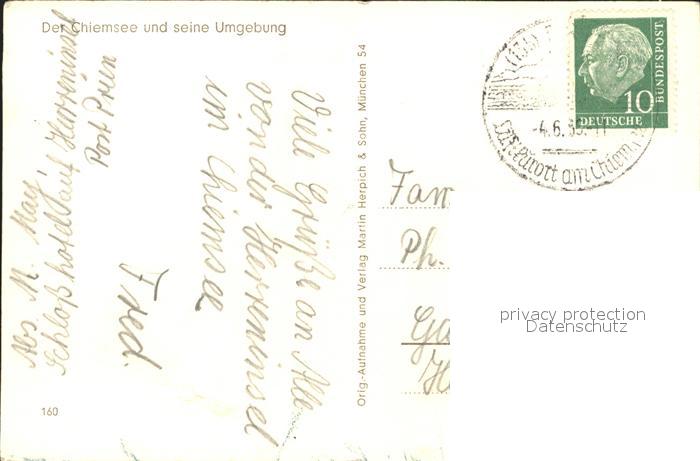 Der Chiemsee und seine Umgebung
Abs. M. May,
Schloßhotel auf Herreninsel
Post Prien
Viele Grüße an Alle
von der Herreninsel
im Chiemsee
Fred.
160
Orig.-Aufnahme und Verlag Martin Herpich & Sohn, München 54
BUNDESPOST
10
DEUTSCHE
-4.6.
Luftkurort am Chiem
Fam
Ph.
Ga
H
privacy protection
Datenschutz